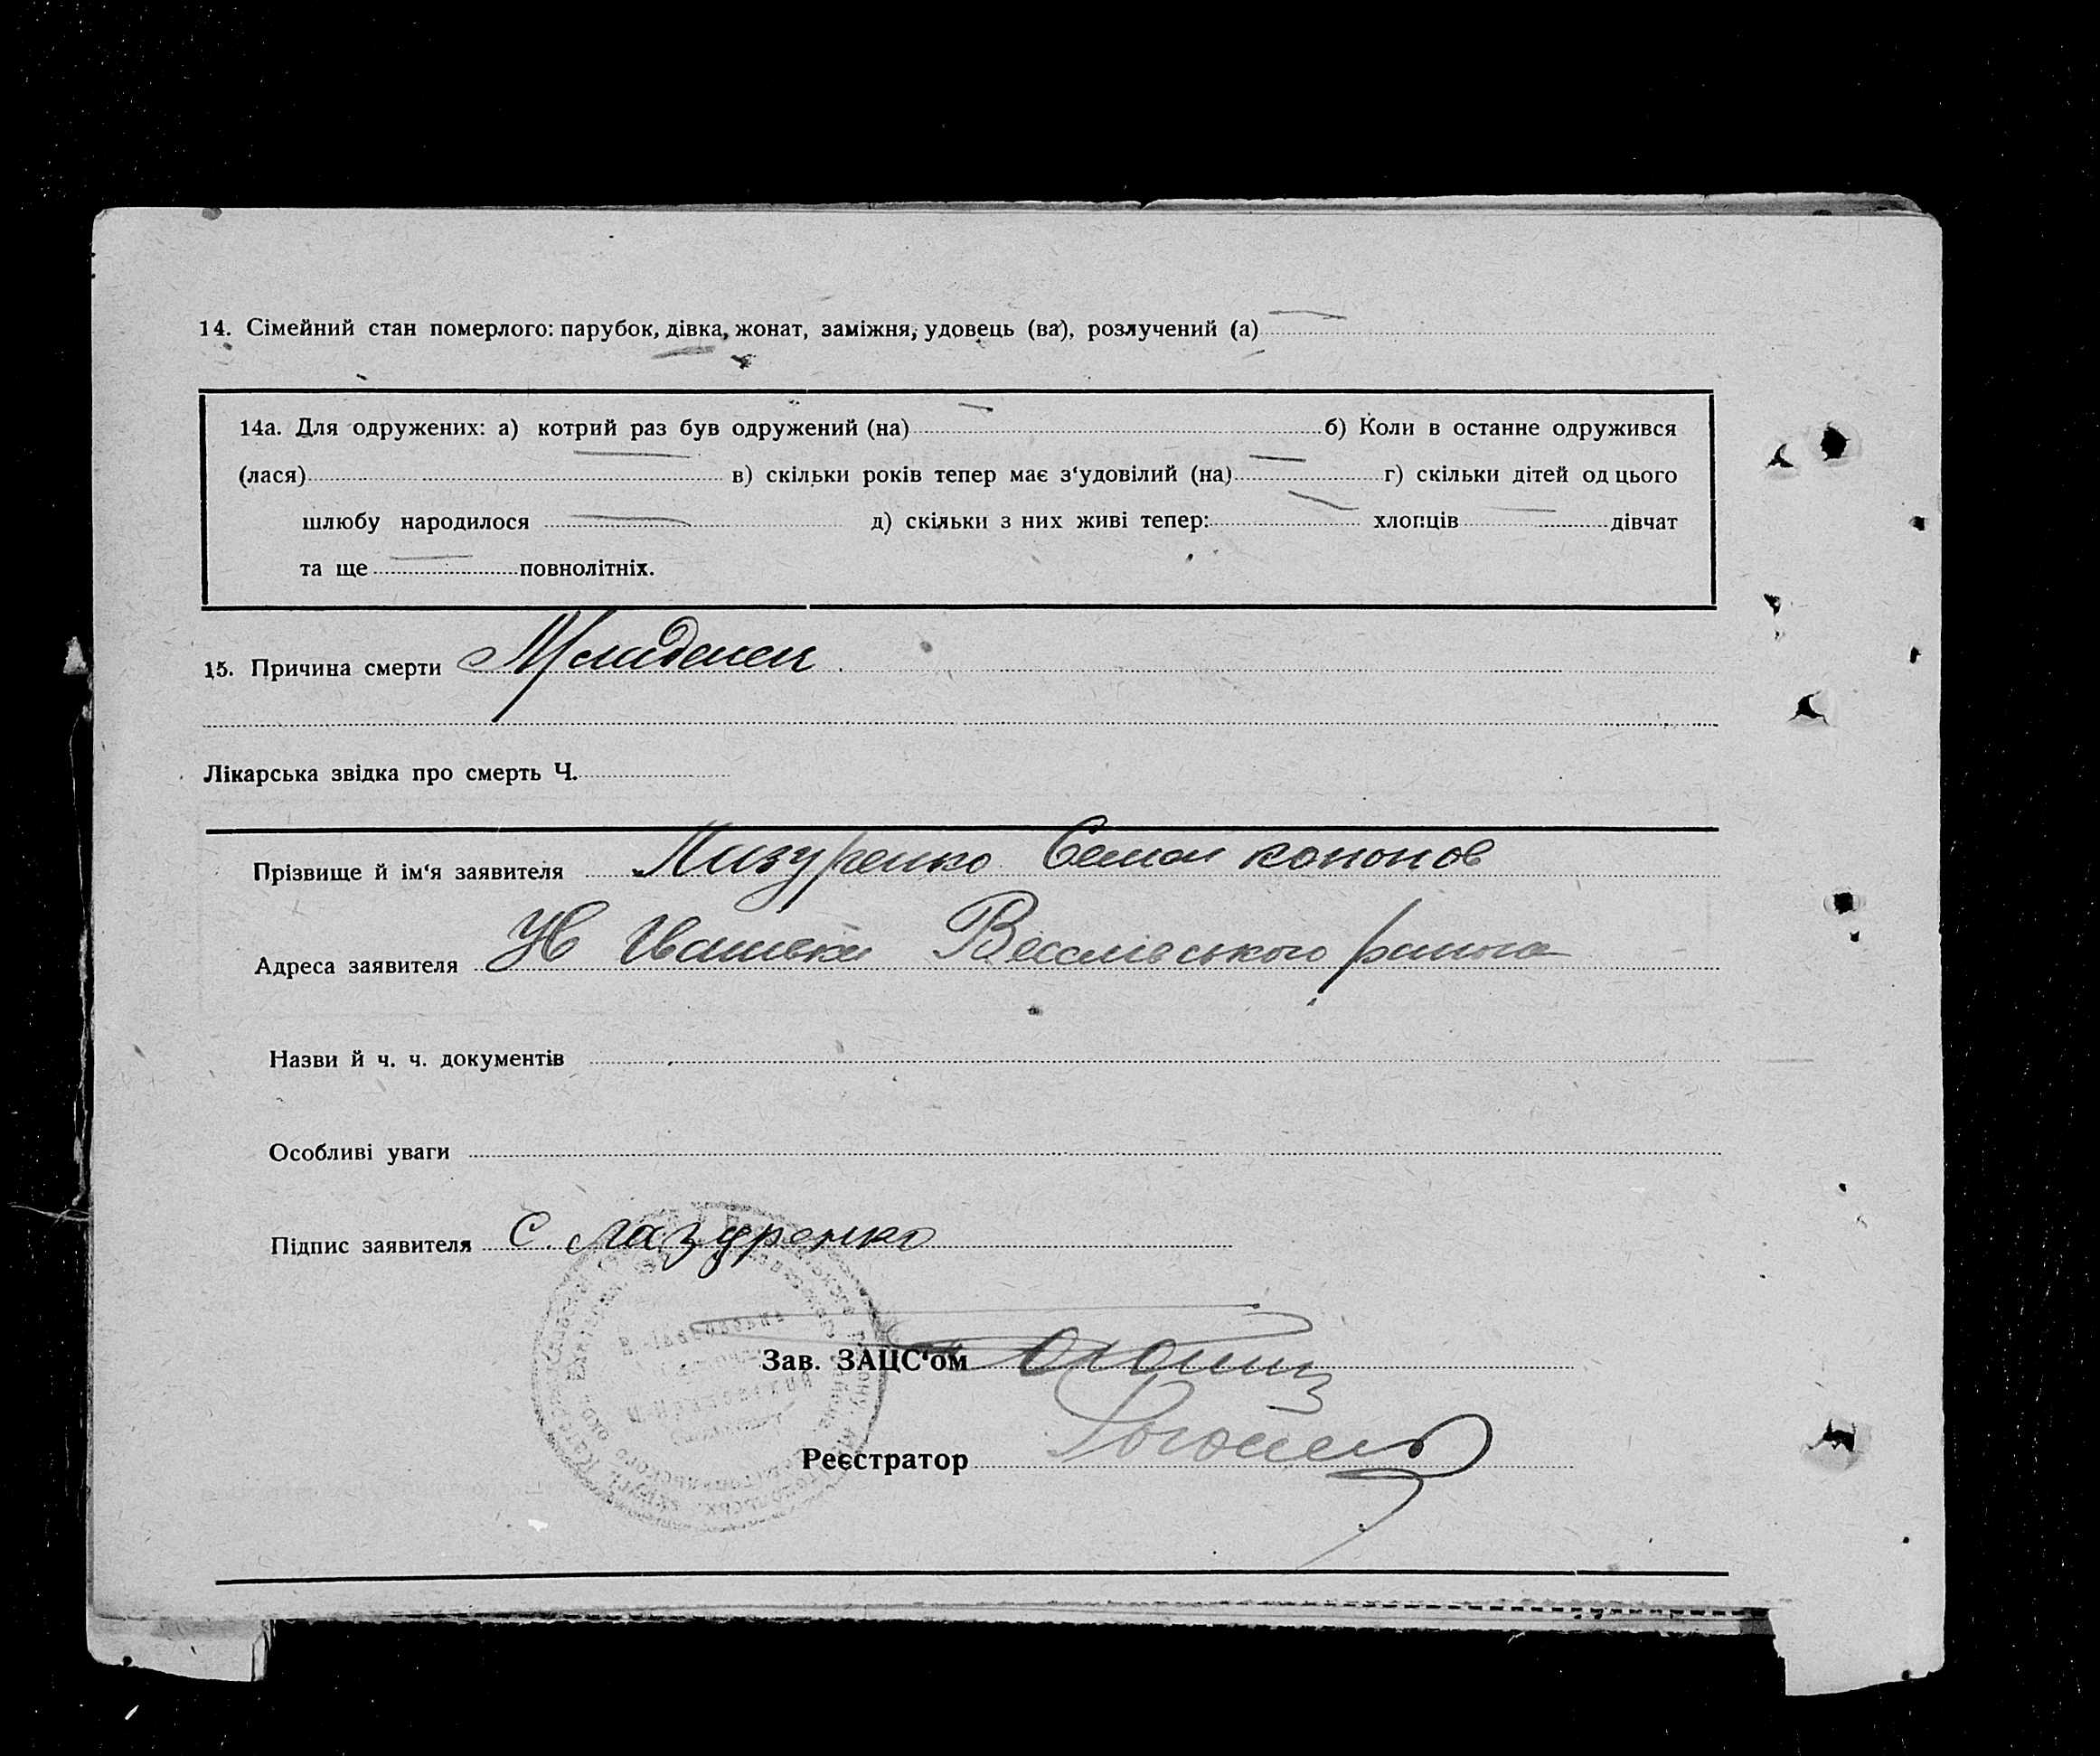 14. Сімейний стан померлого: парубок, дівка, жонат, заміжня, удовець (ва), розлучений (а)
14а. Для одружених: а) котрий раз був одружений (на) б) Коли в останне одружився
(лася) в) скільки років тепер має з‘удовілий (на) г) скільки дітей од цього
шлюбу народилося д) скільки з них живі тепер: хлопців дівчат
та ще повнолітніх.
15. Причина смерти Младенец
Лікарська звідка про смерть Ч.
Прізвище й ім‘я заявителя Лазуренко Семен кононов
Адреса заявителя Ив Ивановка Веселівського району
Назви й ч. ч. документів
Особливі уваги
Підпис заявителя С. Лазуренко
Зав. ЗАЦС‘ом
Реєстратор